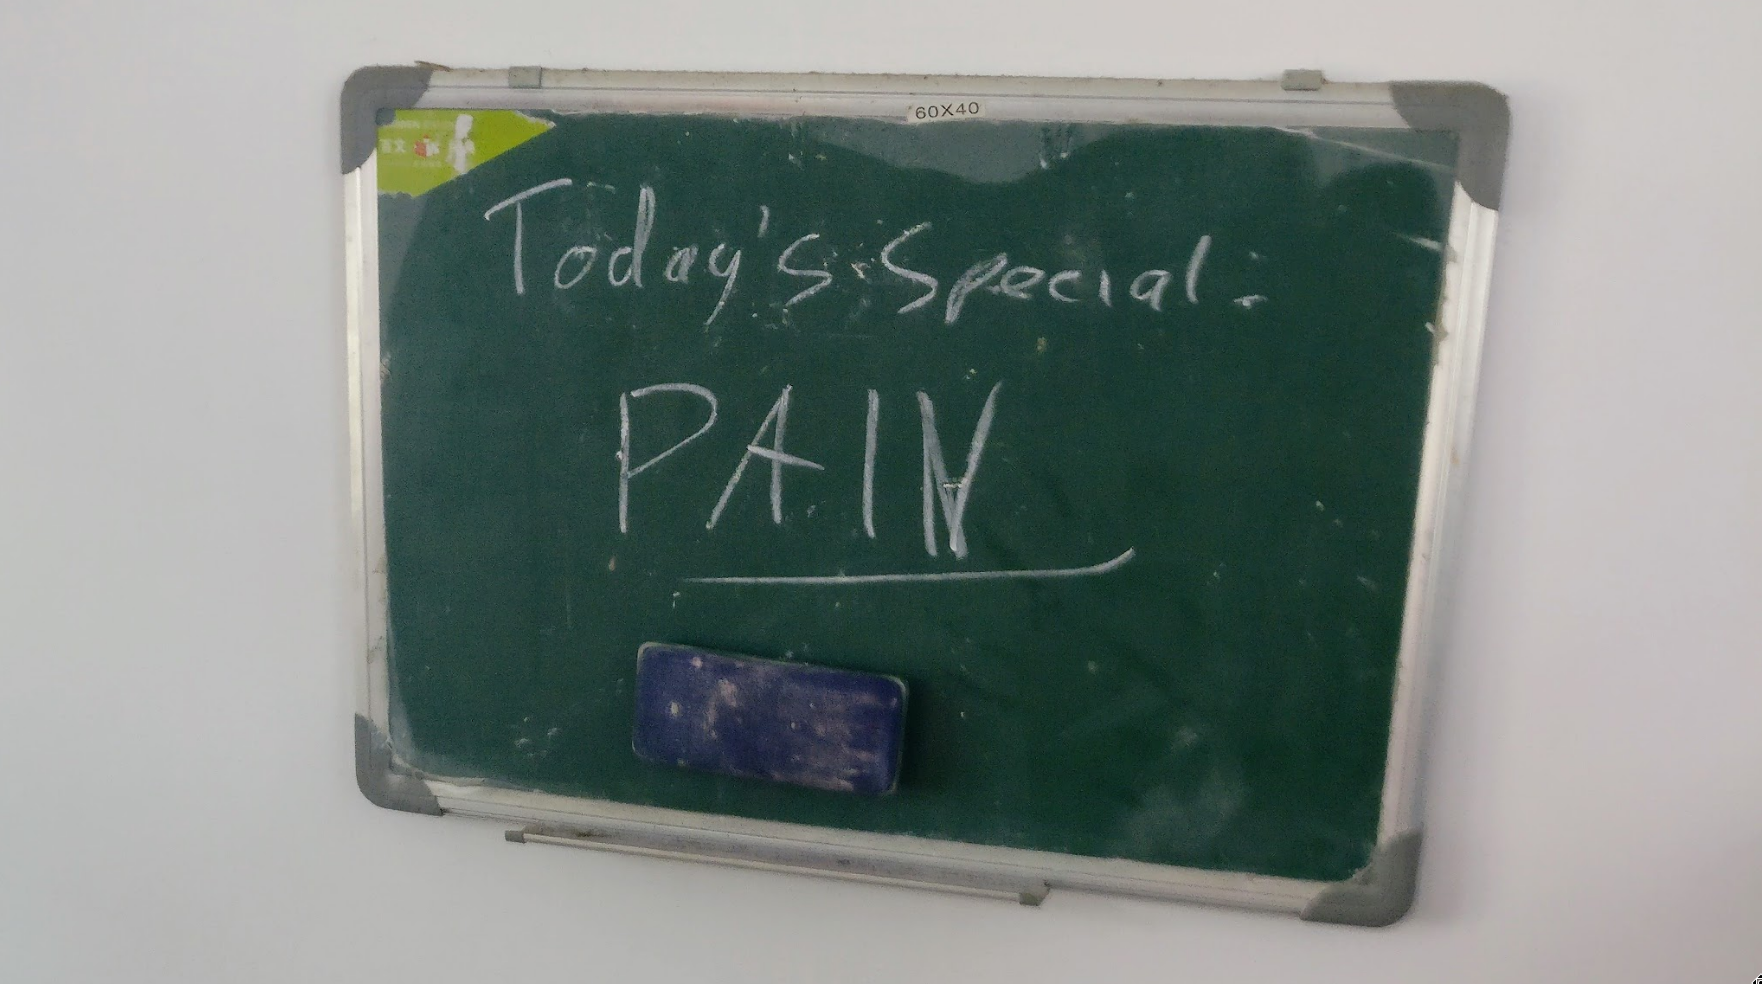 60X40
Today's Special:
PAIN